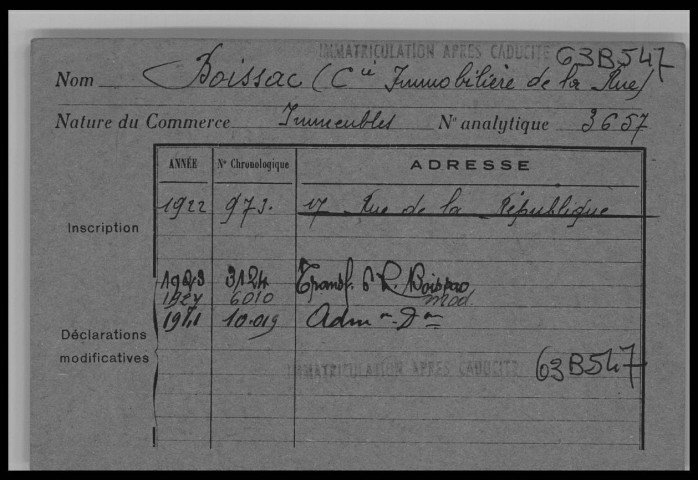 IMMATRICULATION APRES CADUCITE 63B547
Nom Boissac (Cie Immobilière de la Rue)
Nature du Commerce Immeubles No analytique 3657
ANNÉE No Chronologique ADRESSE
Inscription 1922 973. 17 Rue de la République
1923 3124 Transf. 6 R. Boissac
1927 6010 mod
Déclarations modificatives 10.019 Adm on Don
IMMATRICULATION APRES CADUCITE 63B547